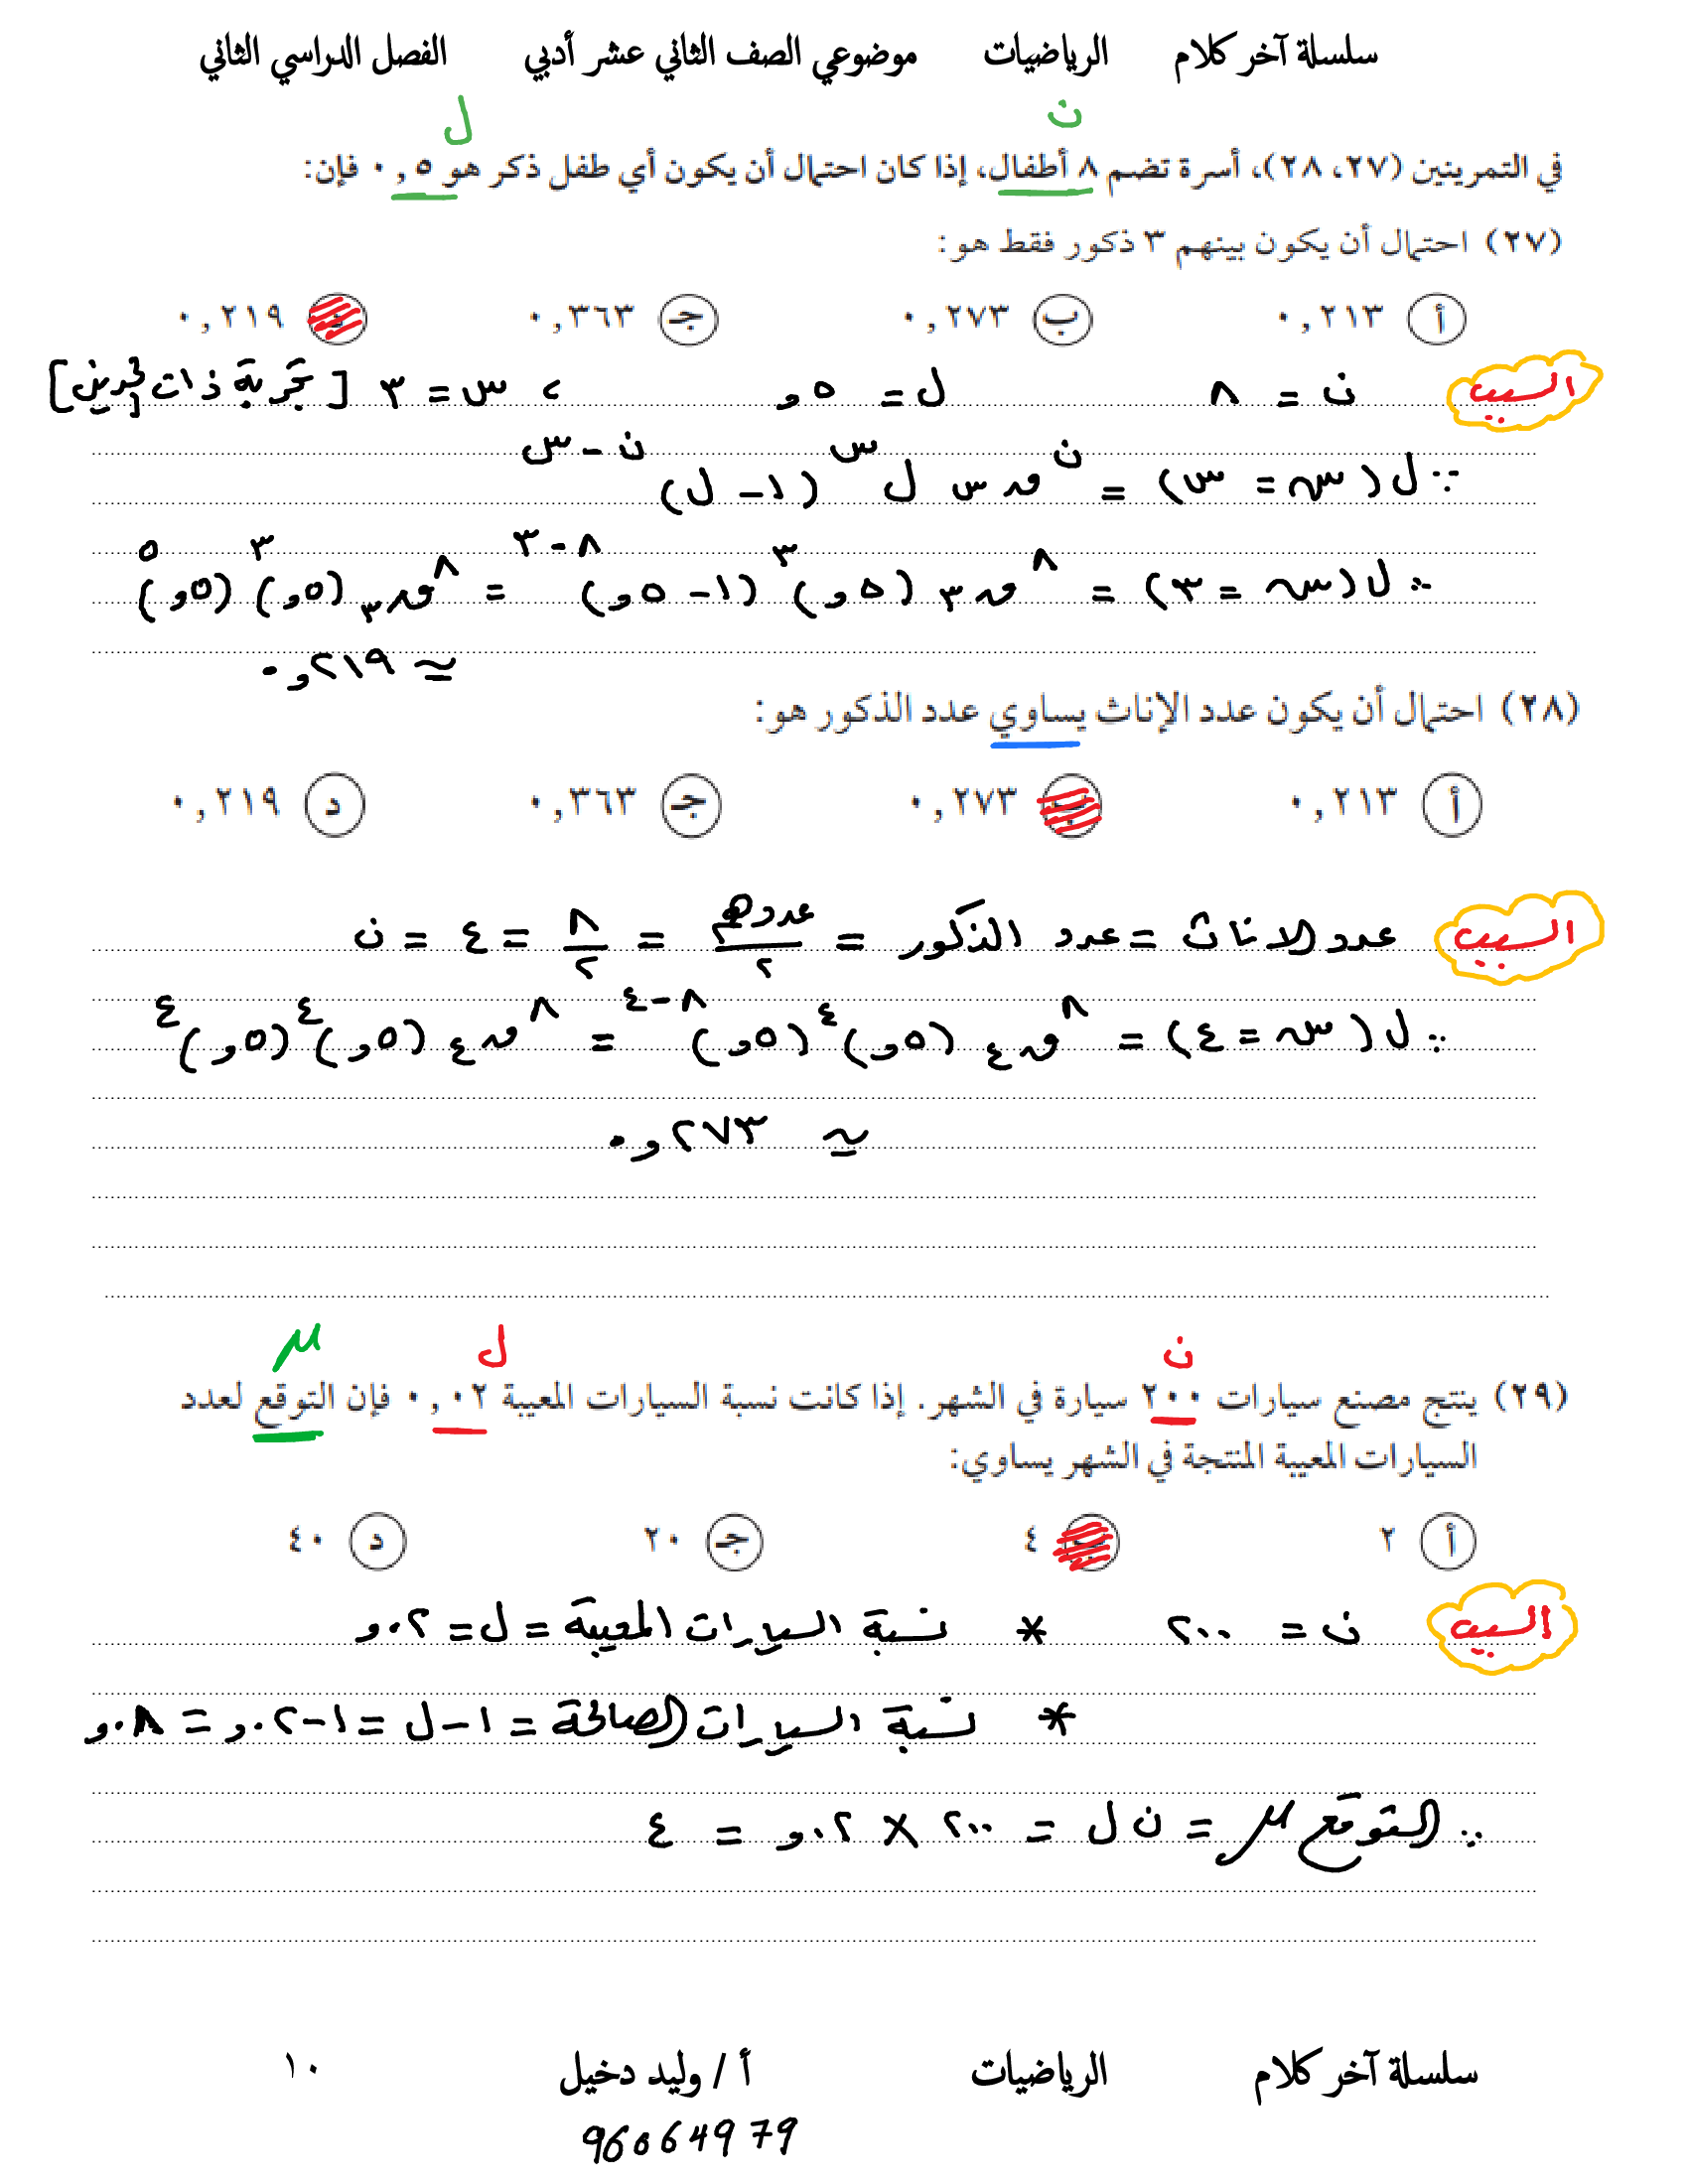 سلسلة آخر كلام الرياضيات موضوعي الصف الثاني عشر أدبي الفصل الدراسي الثاني
ن ل
في التمرينين (٢٧، ٢٨)، أسرة تضم ٨ أطفال، إذا كان احتمال أن يكون أي طفل ذكر هو ٠,٥ فإن:
(٢٧) احتمال أن يكون بينهم ٣ ذكور فقط هو:
أ ٠,٢١٣ ب ٠,٢٧٣ جـ ٠,٣٦٣ د ٠,٢١٩
السبب ن = ٨ ل = ٥و ، س = ٣ [تجربة ذات حدين]
∵ ل(سـ = س) = ⁿقس ل^س (١ - ل)^(ن - س)
∴ ل(سـ = ٣) = ^٨ق٣ (٥و)^٣ (١ - ٥و)^(٨ - ٣) = ^٨ق٣ (٥و)^٣ (٥و)^٥
≃ ٢١٩و٠
(٢٨) احتمال أن يكون عدد الإناث يساوي عدد الذكور هو:
أ ٠,٢١٣ ب ٠,٢٧٣ جـ ٠,٣٦٣ د ٠,٢١٩
السبب عدد الاناث = عدد الذكور = عددهم/٢ = ٨/٢ = ٤ = ن
∴ ل(سـ = ٤) = ^٨ق٤ (٥و)^٤ (٥و)^(٨-٤) = ^٨ق٤ (٥و)^٤ (٥و)^٤
≃ ٢٧٣و٠
ن ل μ
(٢٩) ينتج مصنع سيارات ٢٠٠ سيارة في الشهر. إذا كانت نسبة السيارات المعيبة ٠,٠٢ فإن التوقع لعدد
السيارات المعيبة المنتجة في الشهر يساوي:
أ ٢ ب ٤ جـ ٢٠ د ٤٠
السبب ن = ٢٠٠ * نسبة السيارات المعيبة = ل = ٠٢و
* نسبة السيارات الصالحة = ١ - ل = ١ - ٠٢و = ٠٨و
∴ التوقع μ = ن ل = ٢٠٠ × ٠٢و = ٤
سلسلة آخر كلام الرياضيات أ / وليد دخيل ١٠
96064979